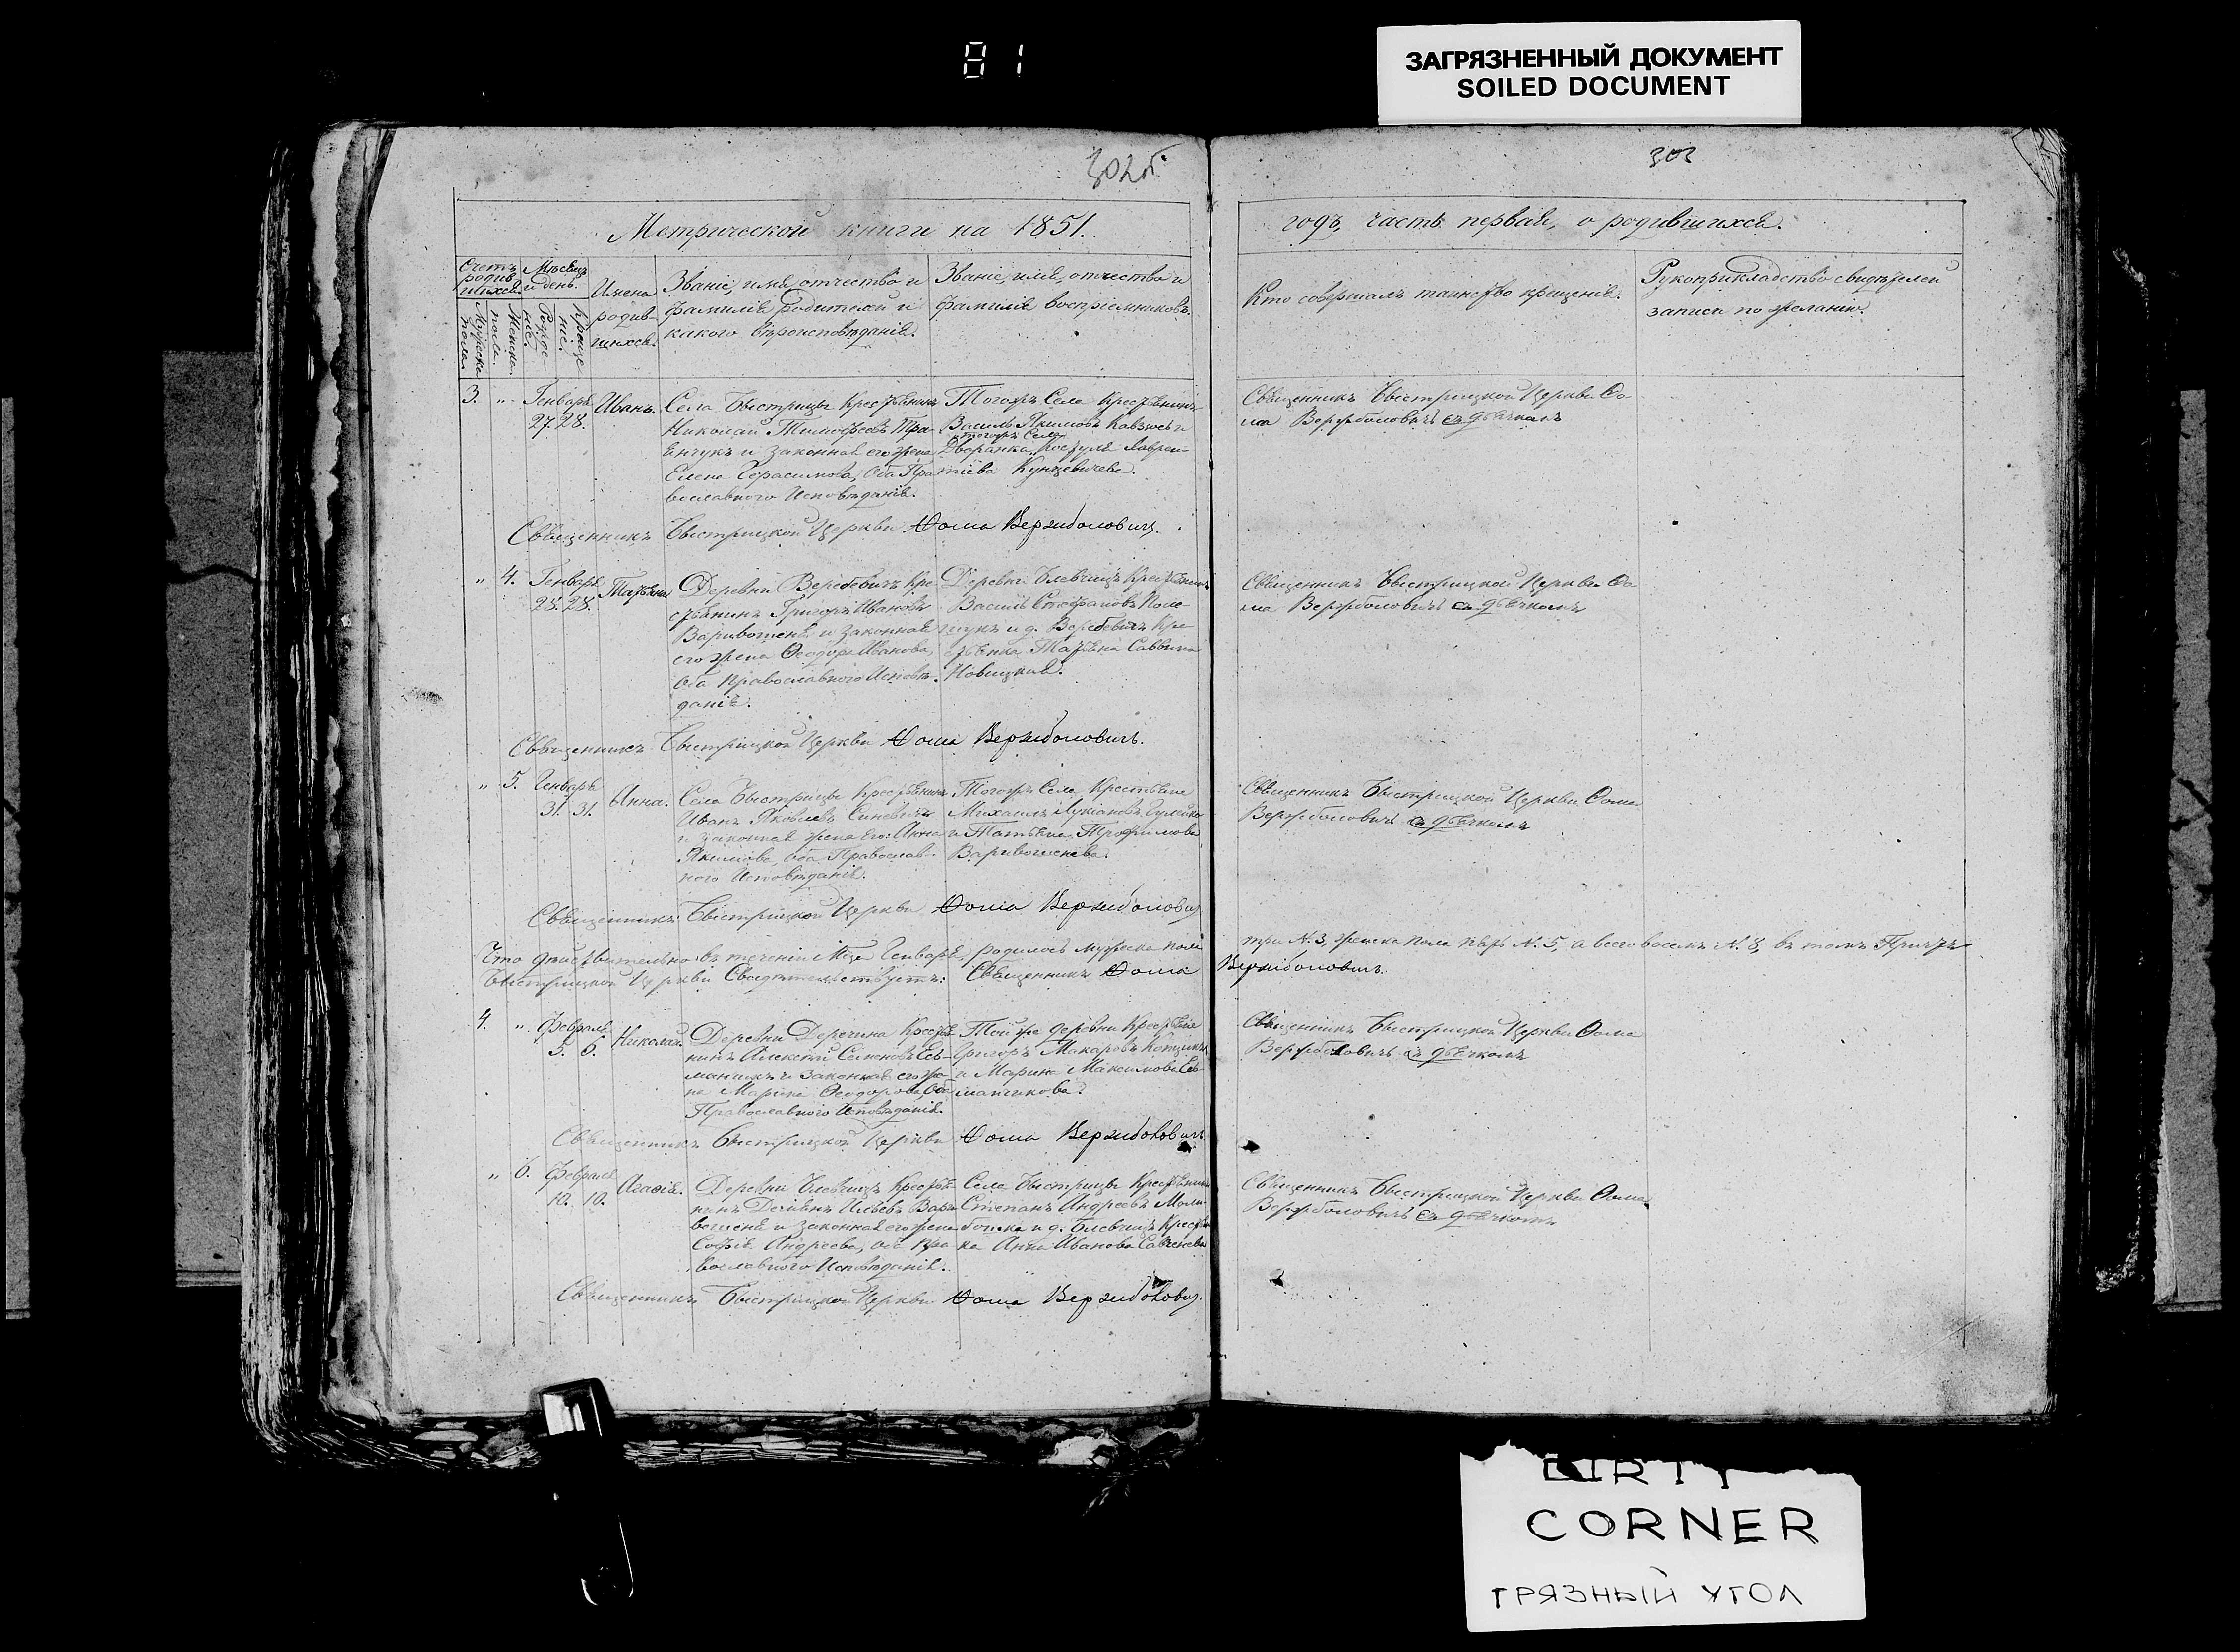 81
ЗАГРЯЗНЕННЫЙ ДОКУМЕНТ
SOILED DOCUMENT
303
Метрической книги на 1851.
годъ, часть первая, о родившихся.
Счетъ родившихся.
Мужеска пола.
Женска пола.
Мѣсяцъ и день.
Рожденіе.
Крещеніе.
Имена
родив-
шихся.
Званіе, имя, отчество и
фамилія родителей и
какого вѣроисповѣданія.
Званіе, имя, отчество и
фамилія воспріемниковъ.
Кто совершалъ таинство крещенія.
Рукоприкладство свидѣтелей
записи по желанію.
3. „
Генваря
27. 28.
Иванъ.
Села Быстрицы Крестьянинъ
Николай Тимофеевъ
и законная его жена
Елена Герасимова, оба Пра-
вославного Исповѣданія.
Тогожъ Села Крестьянинъ
Василь Якимовъ
тогожъ Села
Дворянка Лаврен-
тіева Кунцевичева.
Священникъ Быстрицкой Церкви Ѳо-
ма Вержболовичъ съ дьячкомъ
Священникъ Быстрицкой Церкви Ѳома Вержболовичъ.
„ 4.
Генваря
28. 28.
Татьяна
Деревни Вересевичъ Кре-
стьянинъ Григорій Ивановъ
и законная
его жена Ѳеодора Иванова,
оба Православного Исповѣ-
данія.
Деревни Блевчицъ Крестьянинъ
Василь Стефановъ Поле-
щукъ и д. Вересевичъ Кре-
стьянка Татьяна Саввина
Новицкая.
Священникъ Быстрицкой Церкви Ѳо-
ма Вержболовичъ съ дьячкомъ
Священникъ Быстрицкой Церкви Ѳома Вержболовичъ.
„ 5.
Генваря
31. 31.
Анна.
Села Быстрицы Крестьянинъ
Иванъ Яковлевъ Синевичъ
и законная жена его Анна
Якимова, оба Православ-
ного Исповѣданія.
Тогожъ Села Крестьяне
Михаилъ Лукіановъ
и Татьяна Трофимова
Священникъ Быстрицкой Церкви Ѳома
Вержболовичъ съ дьячкомъ
Священникъ Быстрицкой Церкви Ѳома Вержболовичъ
Что дѣйствительно въ теченіи Мца Генваря, родилось мужеска пола
три N. 3, женска пола пять N. 5, а всего восемь N. 8, въ томъ Причтъ
Быстрицкой Церкви Свидѣтельствуетъ: Священникъ Ѳома
Вержболовичъ.
4. „
Февраля
5. 6.
Николай.
Деревни Деречина Крестья-
нинъ Алексѣй Семеновъ
и законная его же-
на Марина Ѳеодорова, оба
Православного Исповѣданія.
Той же деревни Крестьяне
Григорь Макаровъ
и Марина Максимова
Священникъ Быстрицкой Церкви Ѳома
Вержболовичъ съ дьячкомъ
Священникъ Быстрицкой Церкви Ѳома Вержболовичъ
„ 6.
Февраля
10. 10.
Агафія.
Деревни Блевчицъ Крестья-
нинъ
и законная его жена
Софія Андреева, оба Пра-
вославного Исповѣданія.
Села Быстрицы Крестьянинъ
Степанъ Андреевъ
и д. Блевчицъ Крестьян-
ка Анна Иванова
Священникъ Быстрицкой Церкви Ѳома
Вержболовичъ съ дьячкомъ
Священникъ Быстрицкой Церкви Ѳома Вержболовичъ.
DIRTY
CORNER
ГРЯЗНЫЙ УГОЛ